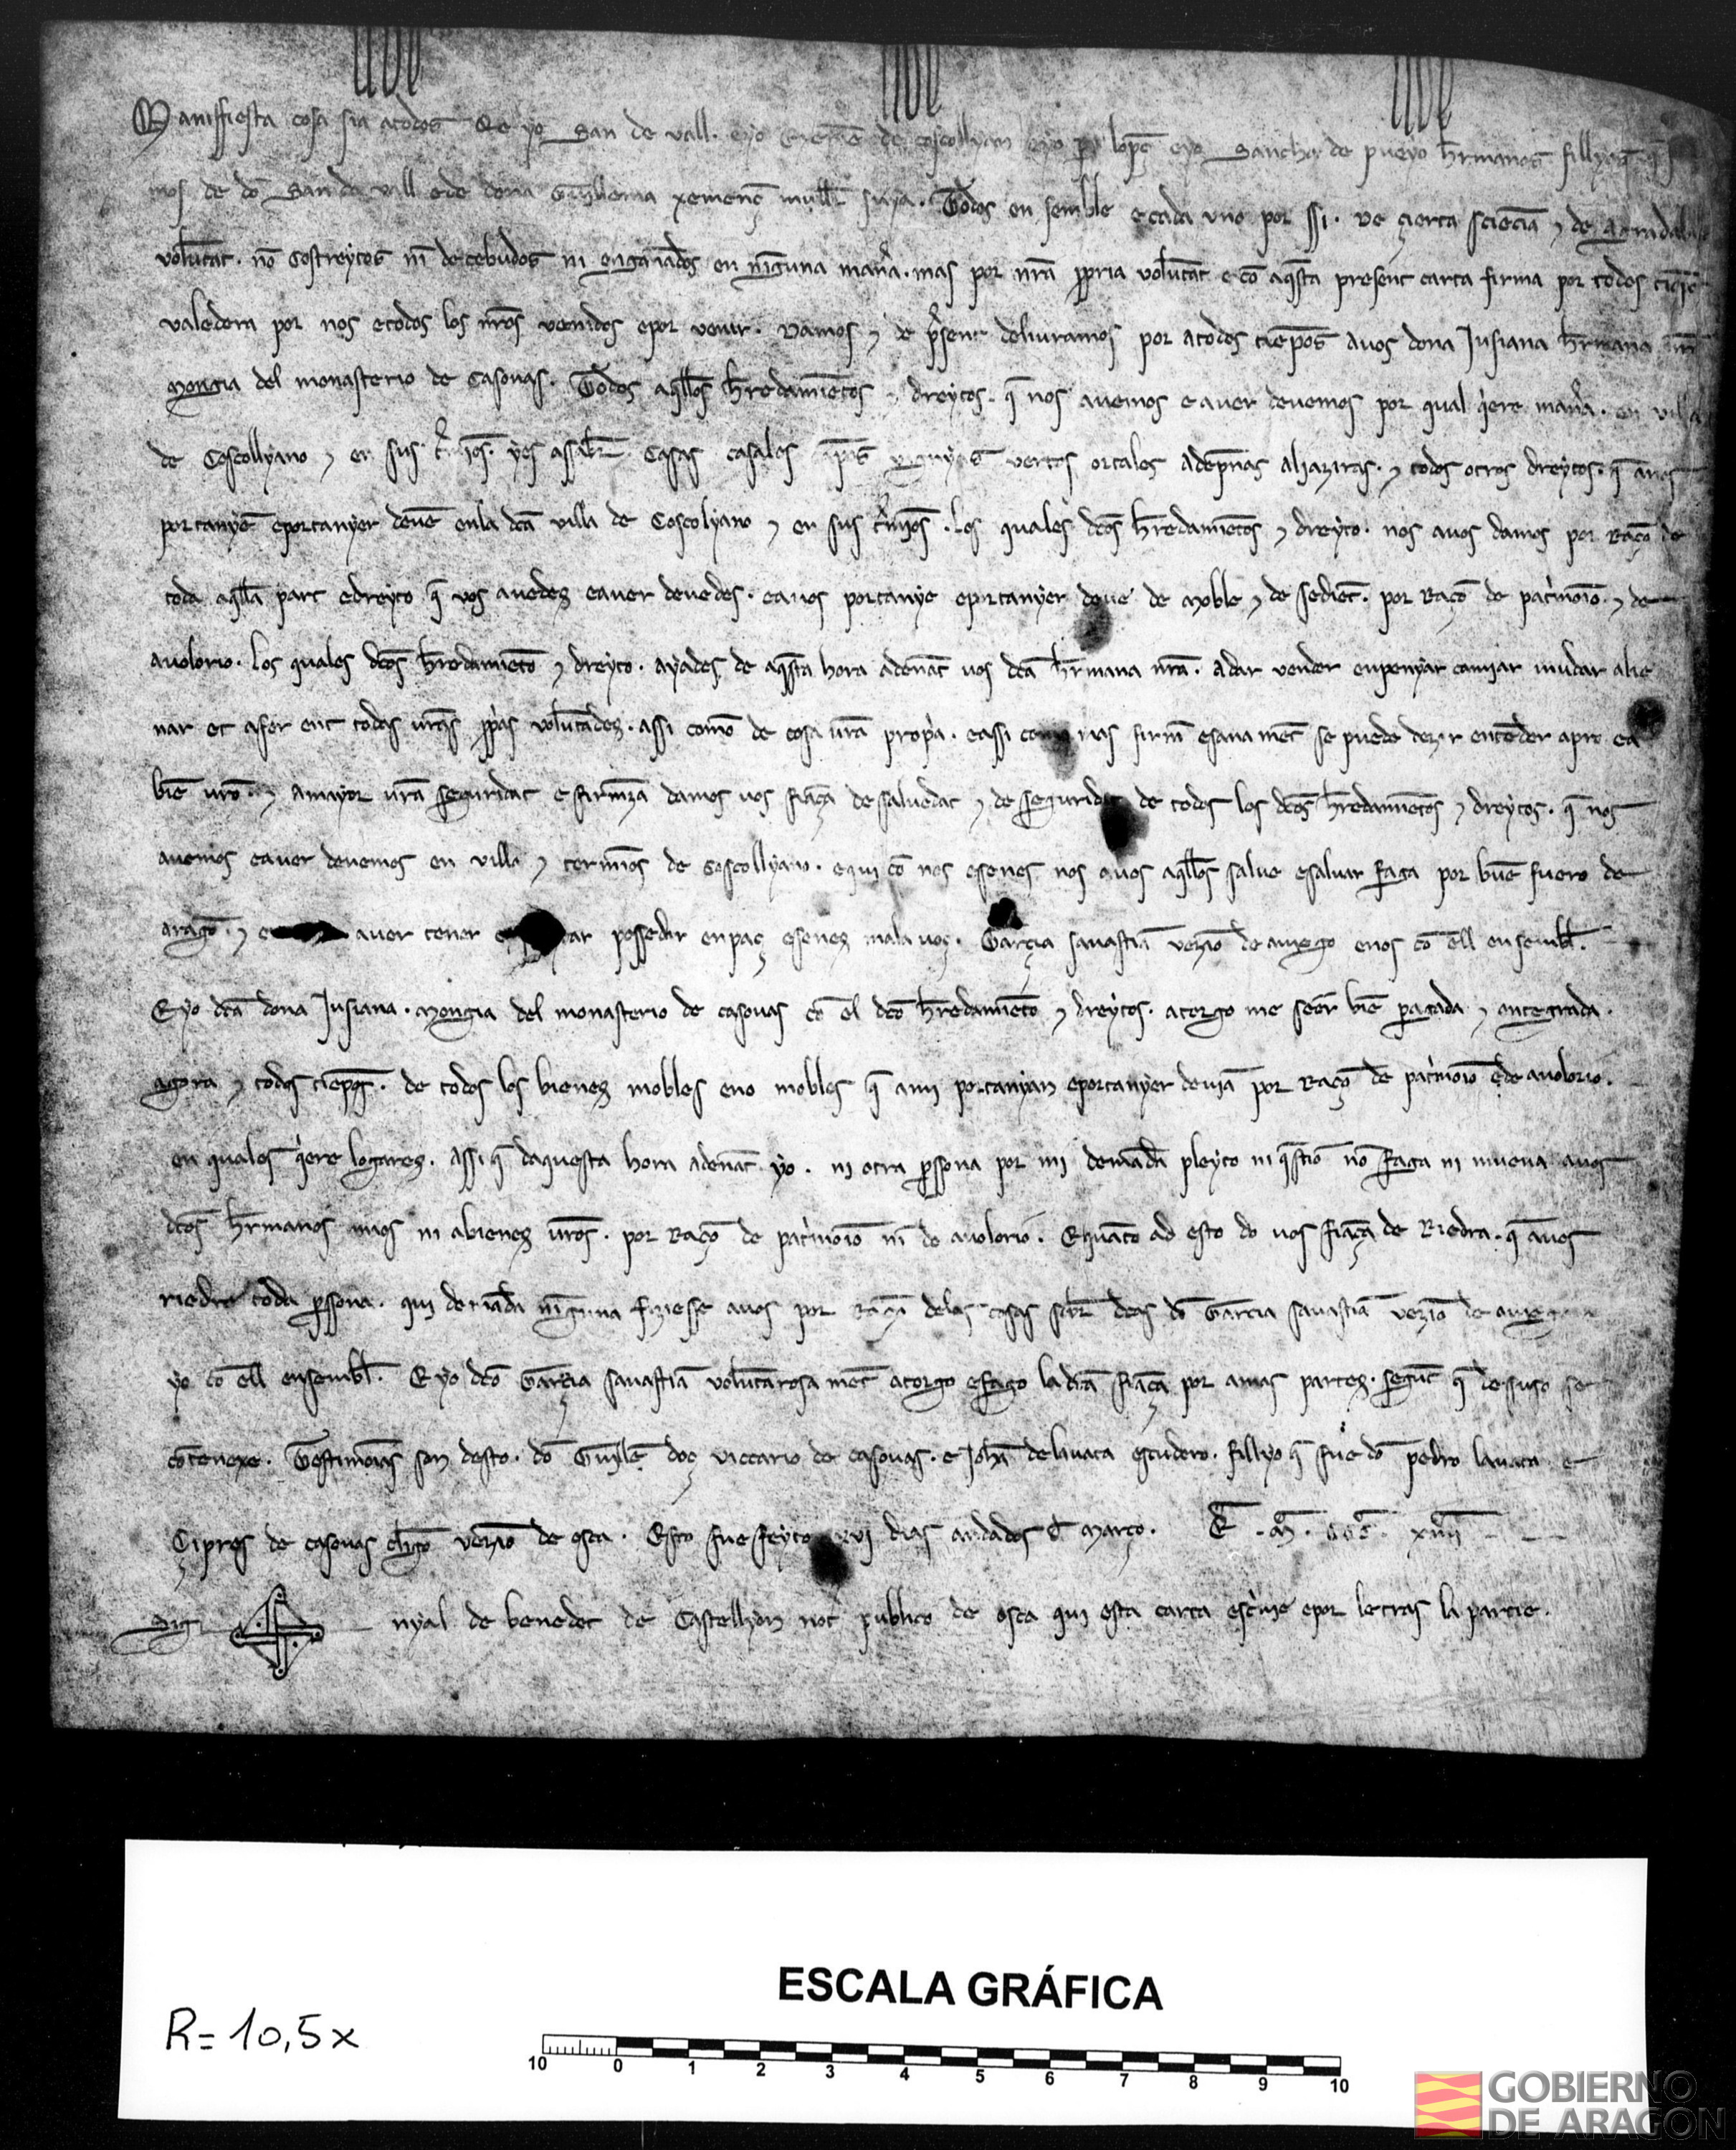 Maniffiesta cosa sia atodos Qe yo San de vall. eyo de coscollyan eyo lopeç eyo Sancha de pueyo h̃rmanos fillyos
de dõ San de vall ede dona Guyllema xemenç mull̃r suya. Todos en semble ecada uno por ssi. De çierta sciẽcia & de
volũtat. nõ costreytos nĩ decebudos ni enganados en nĩguna man̾a. mas por nr̃a ppria volũtat e cõ aq̃sta present carta firma por todos
valedera por nos etodos los nr̃os venidos epor venir. Damos & de p̃sent deliuramos por atodos tiẽpos auos dona Jusiana h̃rmana
Mongia del monasterio de Casouas. Todos aq̃llos h̃redamiẽtos & dreytos. q̃ nos auemos eauer deuemos por qual q̾ere man̾a. en villa
de Coscollyano & en sus t̾mjos. yes assab̃r Casas casales vinyas uertos ortales adẽprias aliaziras. & todos otros dreytos. q̃ anos
portanyẽ eportanyer deuẽ enla dc̃a villa de Coscolyano & en sus t̾mjos. Los quales dc̃os h̃redamiẽtos & dreyto. nos auos damos por Raçõ de
toda aq̃lla part edreyto q̃ vos auedes eauer deuedes. eauos portanye eportanyer deue de Moble & de sediẽt. por Raçõ de pat̾monio & de
auolorio. Los quales dc̃os h̃redamiẽto & dreyto. ayades de aq̃sta hora adenãt uos dc̃a h̃rmana nr̃a. adar vender enpenyar camiar mudar alie
nar et afer ent todas ur̃as pp̾as volũtades. assi como de cosa ur̃a prop̾a. eassi como mas firm̃ esana mẽt se puede dezir entẽder apro ea
biẽ ur̃o. & amayor ur̃a seguridat e firmeza damos uos fiãça desaluedat & de seguridat de todos los dc̃os h̃redamiẽtos & dreytos. q̃ nos
auemos eauer deuemos en villa & terminos de Coscollyano. equi cõ nos esenes nos auos aq̃llos salue esaluar faga por buẽ fuero de
aragõ. & auer tener possedir enpaç esenes mala uoç. Garçia sauastiã vezĩo de anyego enos cõ ell en sembl̃.
E yo dc̃a dona Jusiana. Mongia del monasterio de casouas cõ el dc̃o h̃redamiẽto & dreytos. atorgo me seer biẽ pagada & entegrada.
agora & todos tiẽpos. de todos los bienes mobles eno mobles q̃ ami portanyan eportanyer deuiã por Raçõ de pat̾monio ede auolorio.
en quales q̾ere logares. assi q̃ daquesta hora adenãt yo. ni otra p̃ssona por mi demãda pleyto ni q̃stiõ nõ faga ni mueua auos
dc̃os h̃rmanos mios ni abienes ur̃os. por Raçõ de pat̾monio nĩ de auolorio. Equãto ad esto do uos fiãça de Riedra. q̃ auos
riedre toda p̃ssona. qui demãda nĩguna fiziesse auos por Raçõ delas cosas sob̃r dc̃as dõ Garcia sauastiã vezĩo de anyego
yo cõ ell ensembl̃. E yo dc̃o Garçia sauastiã volũtarosa mẽt atorgo efago la dc̃a fiãça por amas partes. segũt q̃ de suso se
cõtenexe. Testimonias son desto. dõ Guyllẽ doç viccario de casouas. e Johã delauata escudero. fillyo q̃ fue dõ pedro lauata e
Çipres de casouas vezĩo de osca. Esto fue feyto xvi dias andados d̃ Março. E. M̃. ccc. xiiii
Sig nyal de benedet de Castellyon not̾ publico de osca qui esta carta esc̾uie epor letras la partie.
R= 10,5x
ESCALA GRÁFICA
10 0 1 2 3 4 5 6 7 8 9 10
GOBIERNO
DE ARAGON